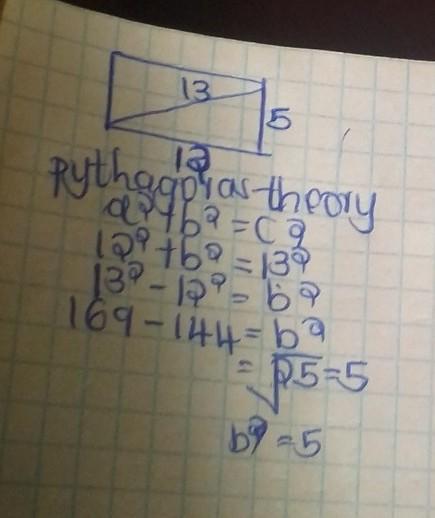 13
5
12
Pythagoras theory
a² + b² = c²
12² + b² = 13²
13² - 12² = b²
169 - 144 = b²
= √25 = 5
b² = 5